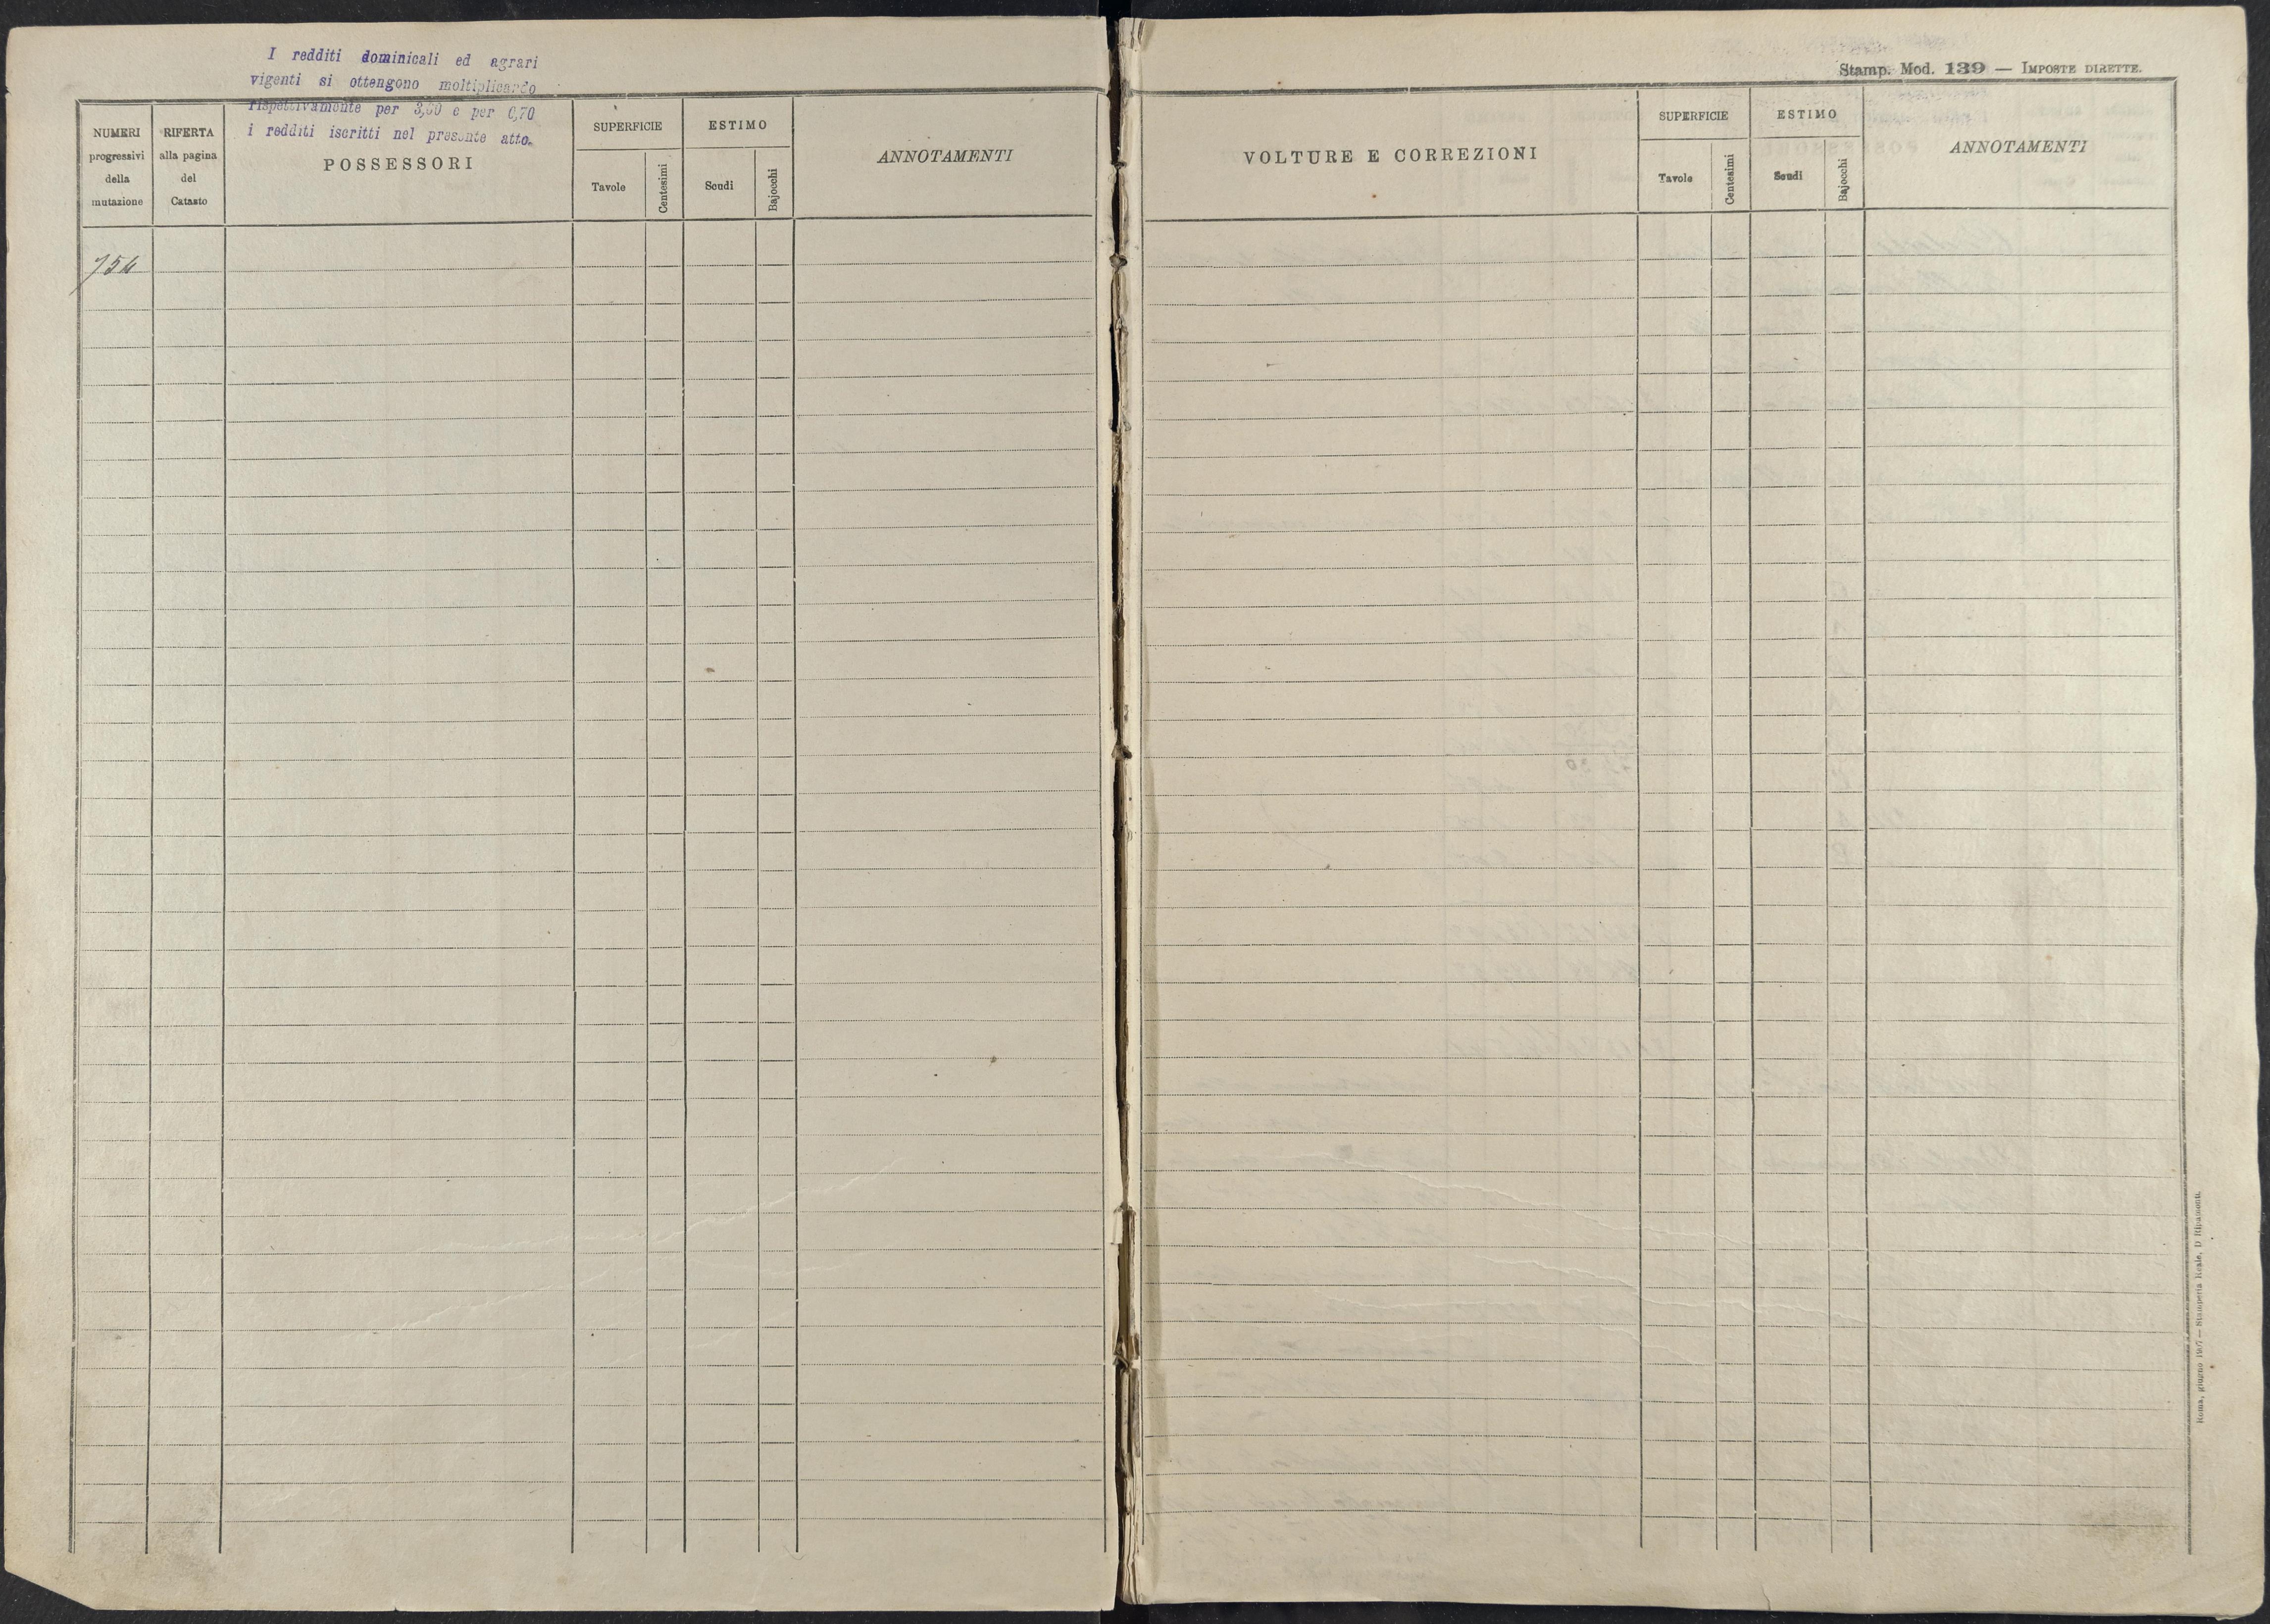 I redditi dominicali ed agrari
vigenti si ottengono moltiplicando
rispettivamente per 3,60 e per 0,70
i redditi iscritti nel presente atto.
NUMERI
progressivi
della
mutazione
RIFERTA
alla pagina
del
Catasto
POSSESSORI
SUPERFICIE
Tavole
Centesimi
ESTIMO
Scudi
Bajocchi
ANNOTAMENTI
754
Stamp. Mod. 139 — IMPOSTE DIRETTE.
VOLTURE E CORREZIONI
SUPERFICIE
Tavole
Centesimi
ESTIMO
Scudi
Bajocchi
ANNOTAMENTI
Roma, giugno 1907 — Stamperia Reale, D. Ripamonti.